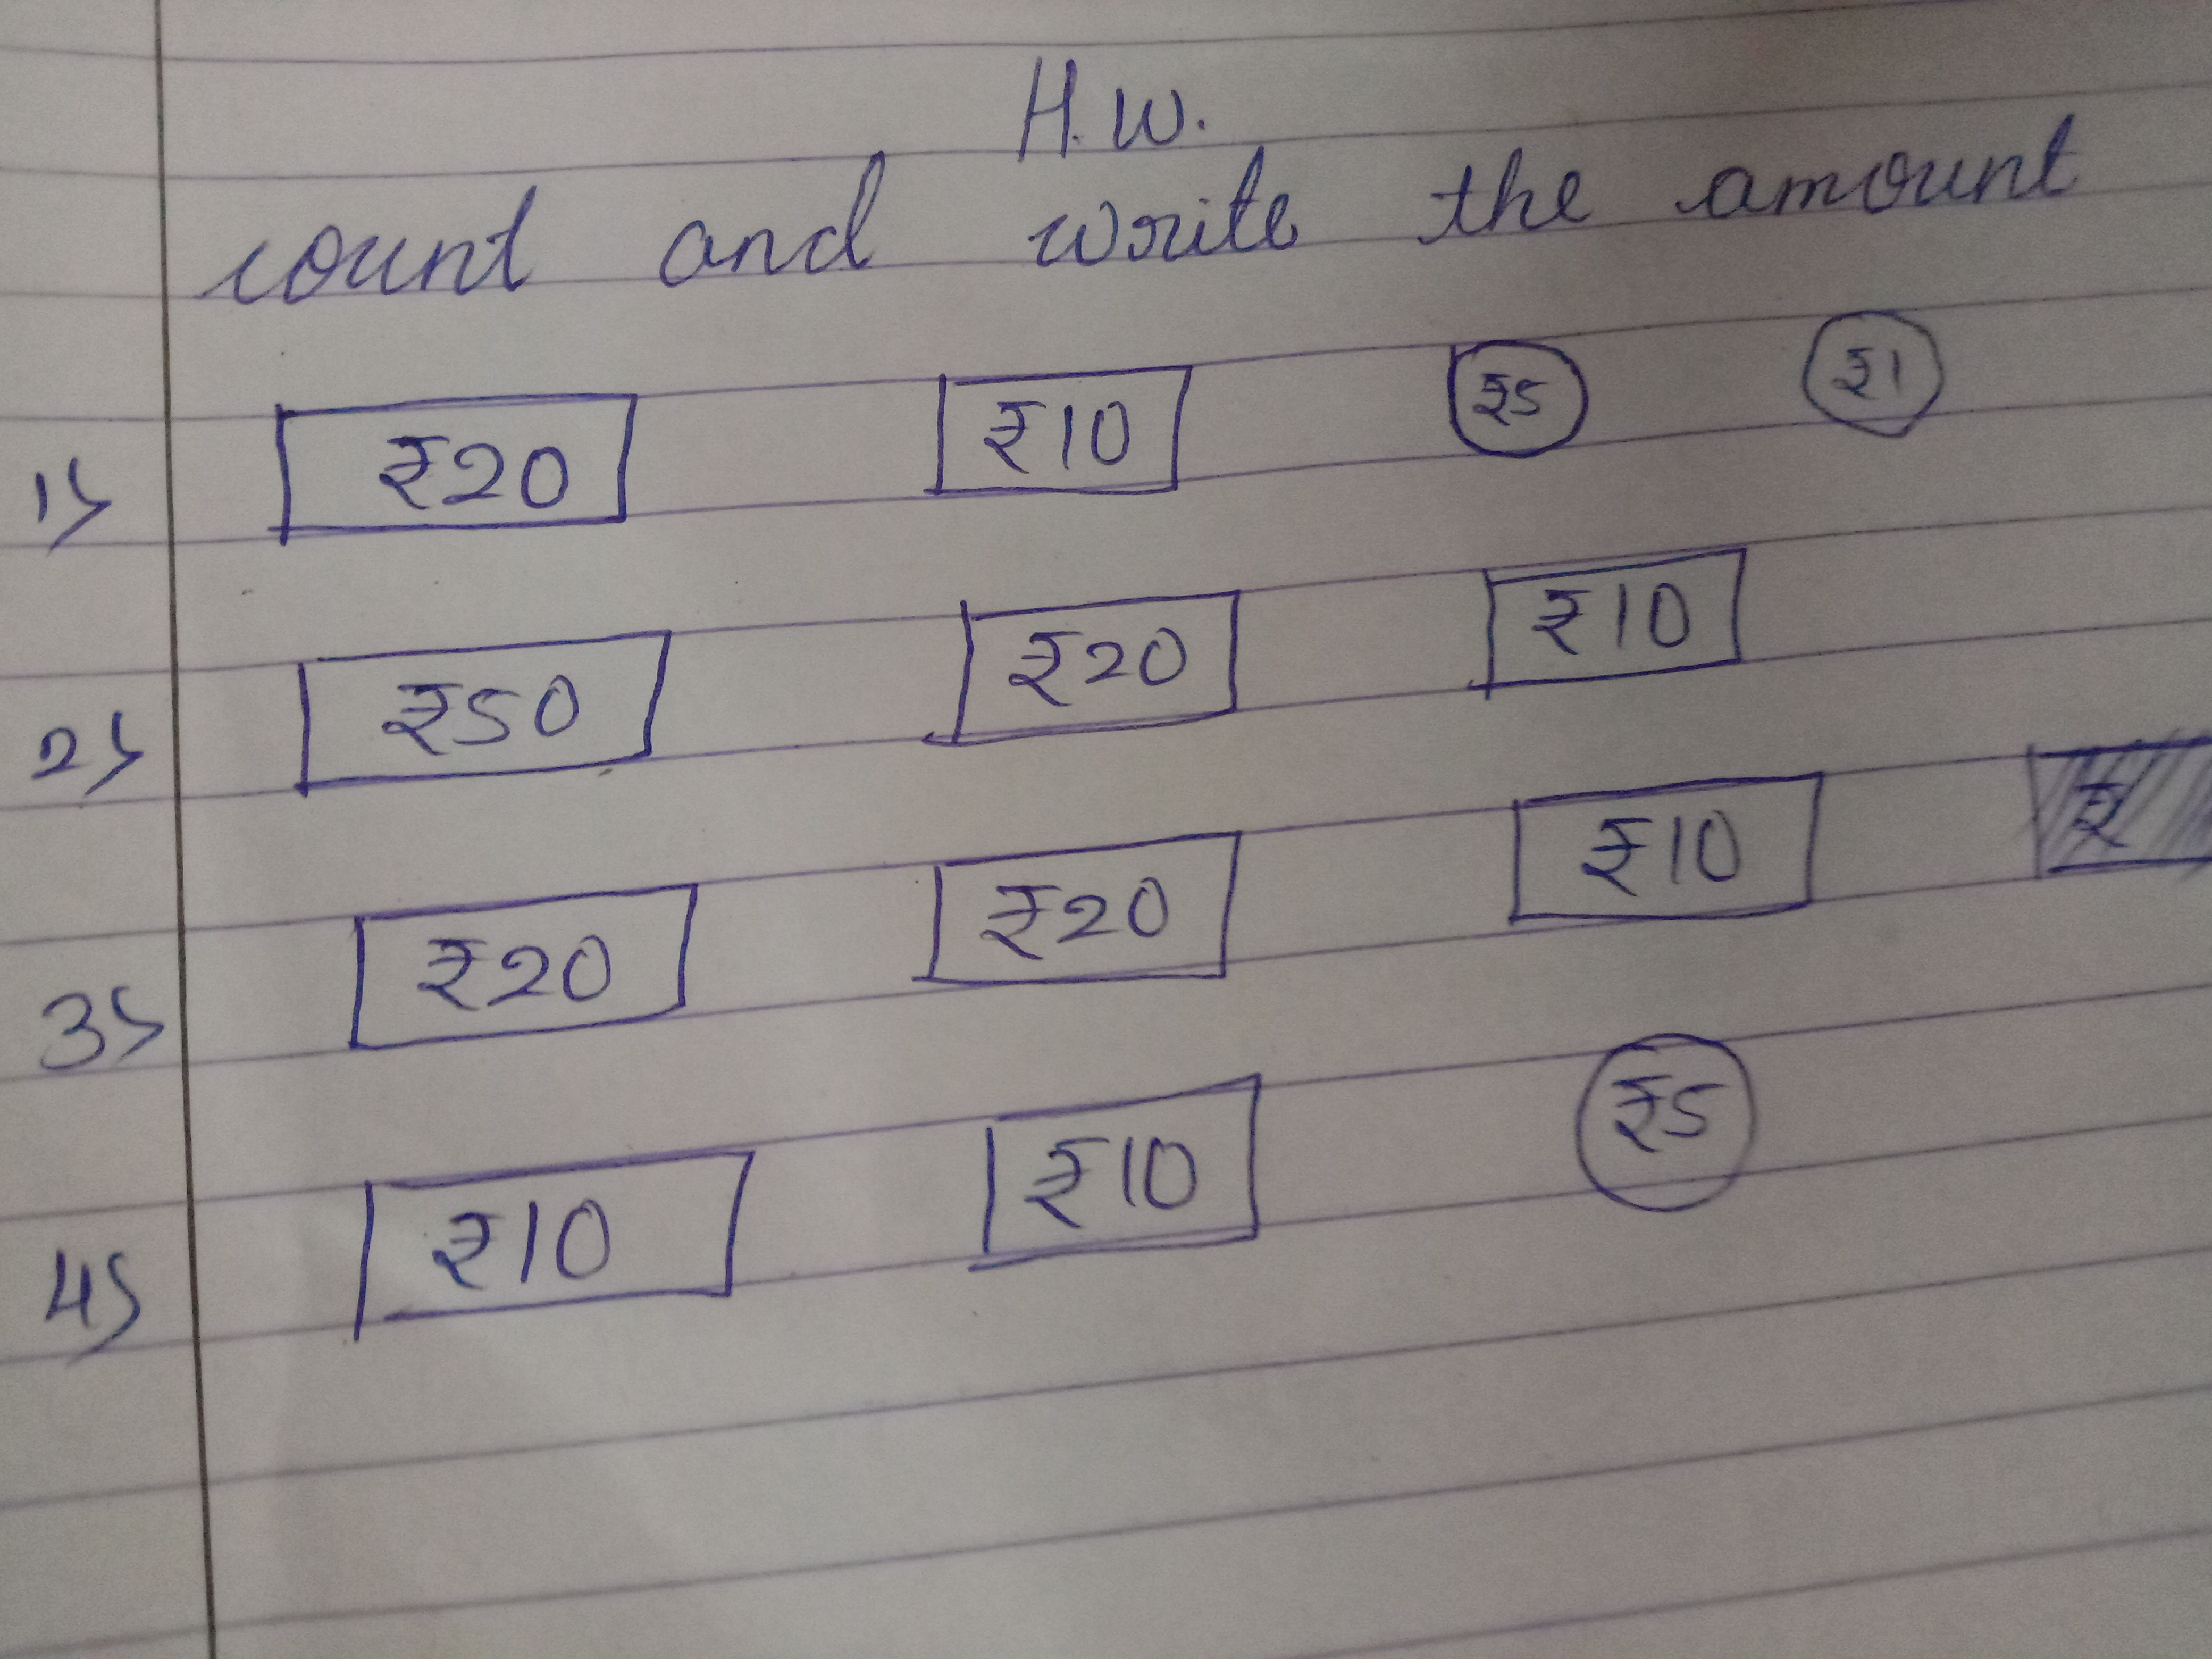 H.W.
count and write the amount
1) ₹20 ₹10 ₹5 ₹1
2) ₹50 ₹20 ₹10
3) ₹20 ₹20 ₹10 ₹
4) ₹10 ₹10 ₹5